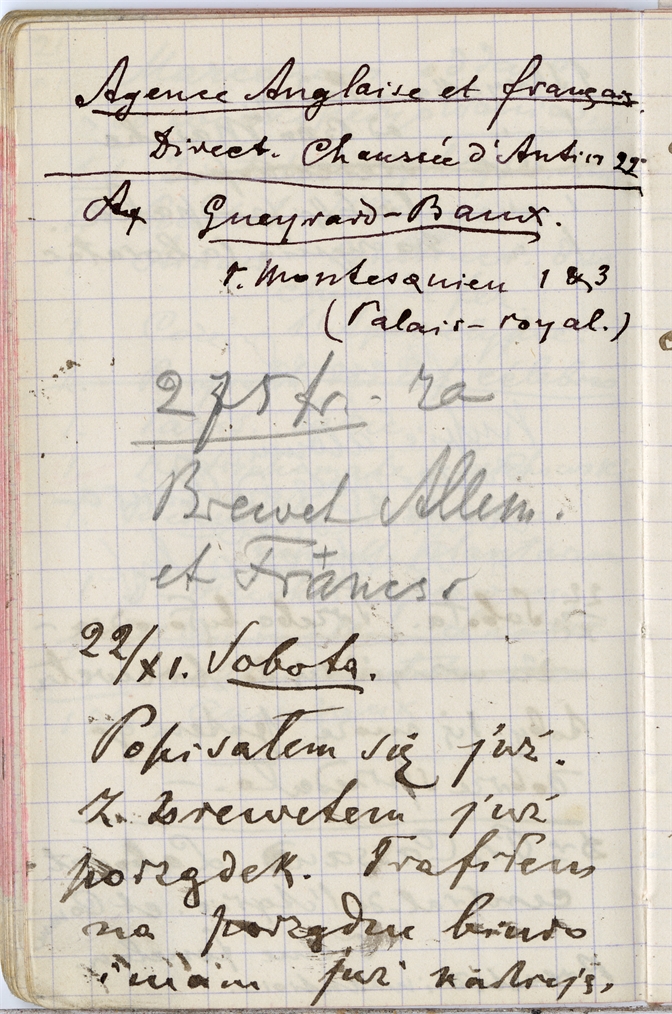 Agence Anglaise et français.
Direct. Chaussée d'Antin 22
Gueyrard-Baux.
r. Montesquieu 1 & 3
(Palais-royal.)
275 fr. - za
Brewet Allem.
et Francs.
22/XI. Sobota.
Popisałem się już.
Z brewetem już
porządek. Trafiłem
na porządne biuro
i mam już nadzieję.